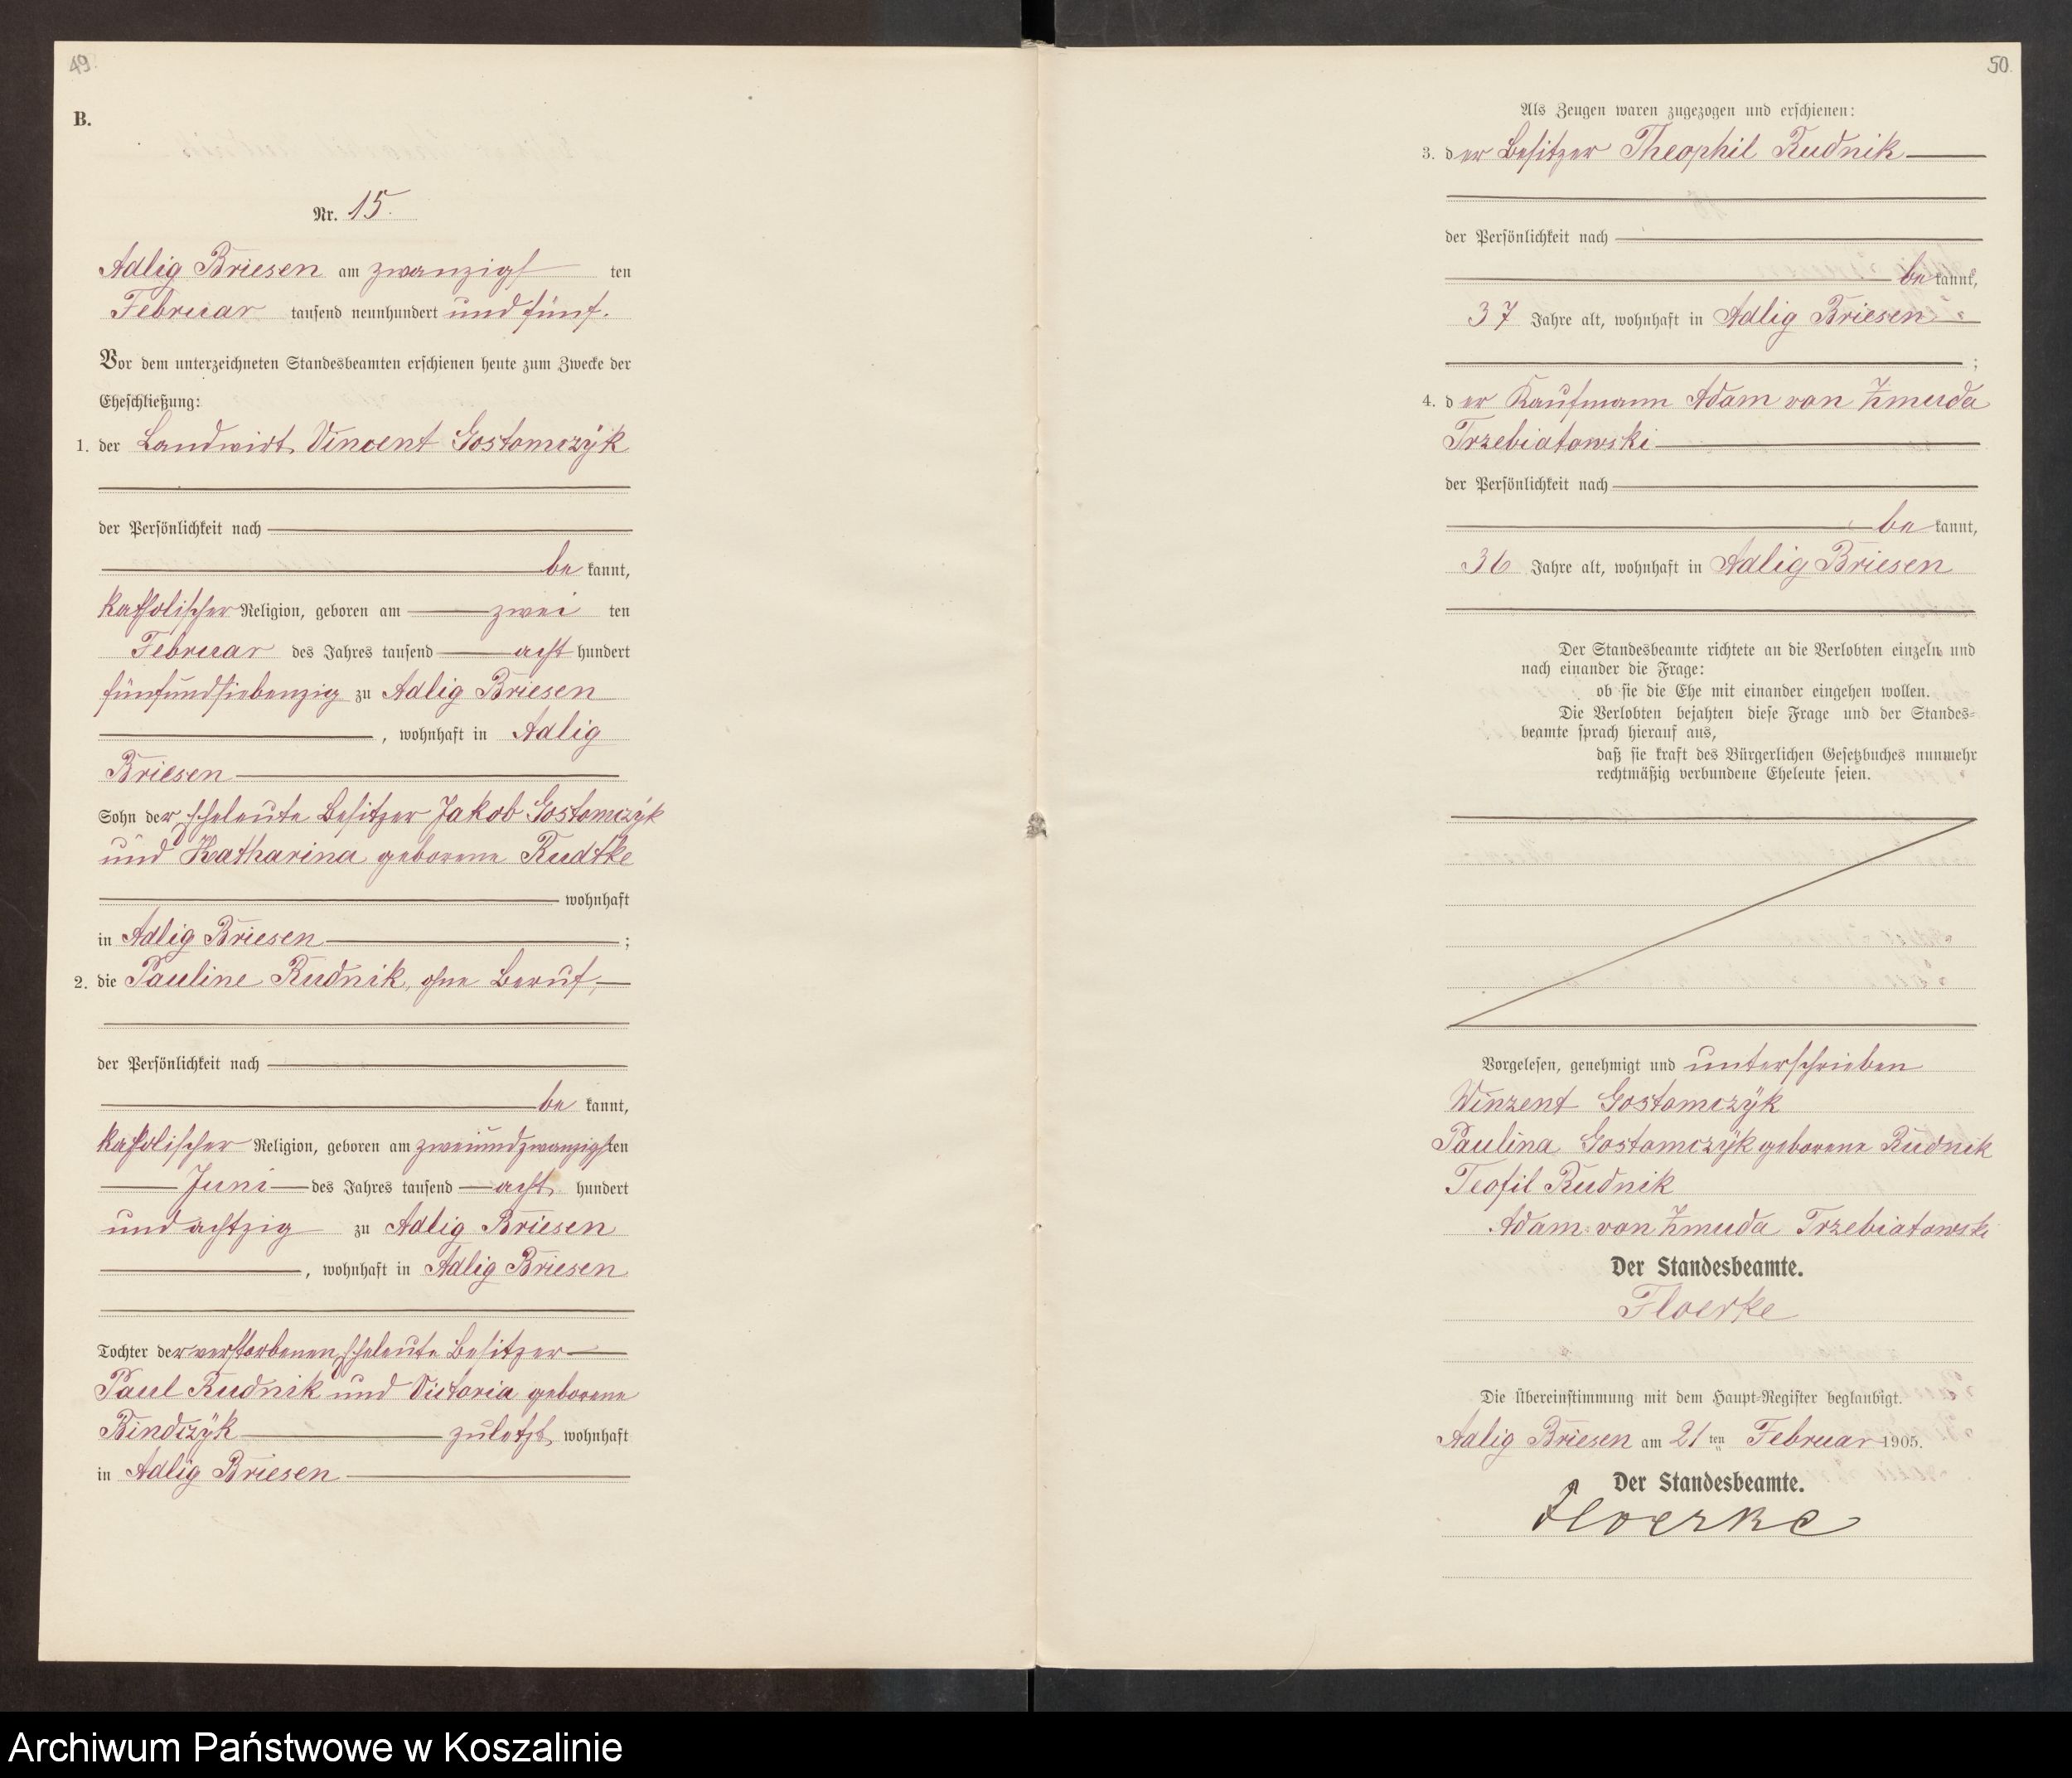 49.
B.
Nr. 15.
Adlig Briesen am zwanzigsten
Februar tausend neunhundert und fünf.
Vor dem unterzeichneten Standesbeamten erschienen heute zum Zwecke der
Eheschließung:
1. der Landwirt Vincent Gostomczÿk
der Persönlichkeit nach
bekannt,
katholischer Religion, geboren am zweiten
Februar des Jahres tausend achthundert
fünfundsiebenzig zu Adlig Briesen
, wohnhaft in Adlig
Briesen
Sohn der Eheleute Besitzer Jakob Gostomczÿk
und Katharina geborene Rudtke
wohnhaft
in Adlig Briesen ;
2. die Pauline Rudnik, ohne Beruf,
der Persönlichkeit nach
bekannt,
katholischer Religion, geboren am zweiundzwanzigsten
Juni des Jahres tausend acht hundert
und achtzig zu Adlig Briesen
, wohnhaft in Adlig Briesen
Tochter der verstorbenen Eheleute Besitzer
Paul Rudnik und Victoria geborene
Bindczÿk zuletzt wohnhaft
in Adlig Briesen
50.
Als Zeugen waren zugezogen und erschienen:
3. der Besitzer Theophil Rudnik
der Persönlichkeit nach
bekannt,
37 Jahre alt, wohnhaft in Adlig Briesen
;
4. der Kaufmann Adam von Zmuda
Trzebiatowski
der Persönlichkeit nach
bekannt,
36 Jahre alt, wohnhaft in Adlig Briesen
Der Standesbeamte richtete an die Verlobten einzeln und
nach einander die Frage:
ob sie die Ehe mit einander eingehen wollen.
Die Verlobten bejahten diese Frage und der Standes-
beamte sprach hierauf aus,
daß sie kraft des Bürgerlichen Gesetzbuches nunmehr
rechtmäßig verbundene Eheleute seien.
Vorgelesen, genehmigt und unterschrieben
Winzent Gostomczÿk
Paulina Gostomczÿk geborene Rudnik
Teofil Rudnik
Adam von Zmuda Trzebiatowski
Der Standesbeamte.
Floerke
Die Übereinstimmung mit dem Haupt-Register beglaubigt.
Adlig Briesen am 21ten Februar 1905.
Der Standesbeamte.
Floerke
Archiwum Państwowe w Koszalinie